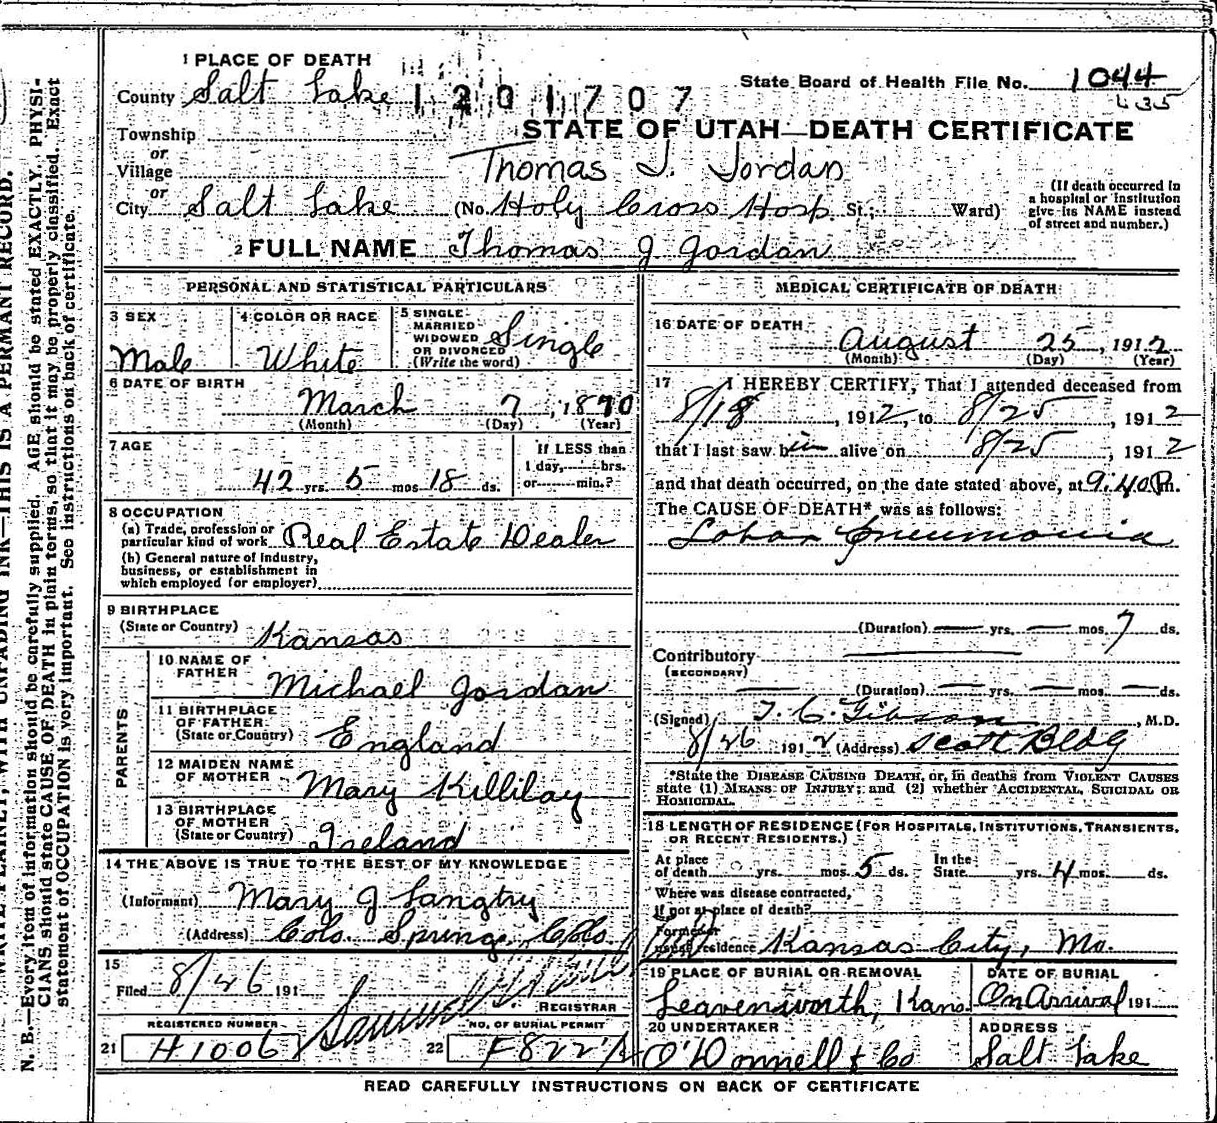 N. B.—Every item of information should be carefully supplied. AGE should be stated EXACTLY. PHYSI-
CIANS should state CAUSE OF DEATH in plain terms, so that it may be properly classified. Exact
statement of OCCUPATION is very important. See instructions on back of certificate.
1 PLACE OF DEATH
County Salt Lake
1201707
State Board of Health File No. 1044
STATE OF UTAH—DEATH CERTIFICATE
Township
or
Village
Thomas J. Jordan
or
City Salt Lake (No. Holy Cross Hosp St.; Ward)
(If death occurred in
a hospital or institution
give its NAME instead
of street and number.)
2 FULL NAME Thomas J Jordan
PERSONAL AND STATISTICAL PARTICULARS
3 SEX
Male
4 COLOR OR RACE
White
5 SINGLE
MARRIED
WIDOWED
OR DIVORCED
(Write the word)
Single
6 DATE OF BIRTH
March 7, 1870
(Month) (Day) (Year)
7 AGE
42 yrs. 5 mos 18 ds.
If LESS than
1 day, hrs.
or min.?
8 OCCUPATION
(a) Trade, profession or
particular kind of work Real Estate Dealer
(b) General nature of industry,
business, or establishment in
which employed (or employer)
9 BIRTHPLACE
(State or Country) Kansas
PARENTS
10 NAME OF
FATHER
Michael Jordan
11 BIRTHPLACE
OF FATHER
(State or Country) England
12 MAIDEN NAME
OF MOTHER Mary Killilay
13 BIRTHPLACE
OF MOTHER
(State or Country) Ireland
14 THE ABOVE IS TRUE TO THE BEST OF MY KNOWLEDGE
(Informant) Mary J Langtry
(Address) Colo. Springs, Colo
15
Filed 8/26 191
REGISTRAR
REGISTERED NUMBER
21 H1006
NO. OF BURIAL PERMIT
22
MEDICAL CERTIFICATE OF DEATH
16 DATE OF DEATH
August 25, 1912
(Month) (Day) (Year)
17 I HEREBY CERTIFY, That I attended deceased from
8/18, 1912, to 8/25, 1912
that I last saw him alive on 8/25, 1912
and that death occurred, on the date stated above, at 9:40 P.m.
The CAUSE OF DEATH* was as follows:
Lobar Pneumonia
(Duration) — yrs. — mos. 7 ds.
Contributory
(SECONDARY)
(Duration) — yrs. — mos. — ds.
(Signed) T. C. Gibson, M.D.
8/26 1912 (Address) Scott Bldg
*State the DISEASE CAUSING DEATH, or, in deaths from VIOLENT CAUSES
state (1) MEANS OF INJURY; and (2) whether ACCIDENTAL, SUICIDAL OR
HOMICIDAL.
18 LENGTH OF RESIDENCE (FOR HOSPITALS, INSTITUTIONS, TRANSIENTS,
OR RECENT RESIDENTS.)
At place
of death yrs. mos. 5 ds.
In the
State yrs. 4 mos. ds.
Where was disease contracted,
If not at place of death?
Former or
usual residence Kansas City, Mo.
19 PLACE OF BURIAL OR REMOVAL
Leavensworth, Kans
DATE OF BURIAL
On Arrival 191
20 UNDERTAKER
O'Donnell & Co
ADDRESS
Salt Lake
READ CAREFULLY INSTRUCTIONS ON BACK OF CERTIFICATE